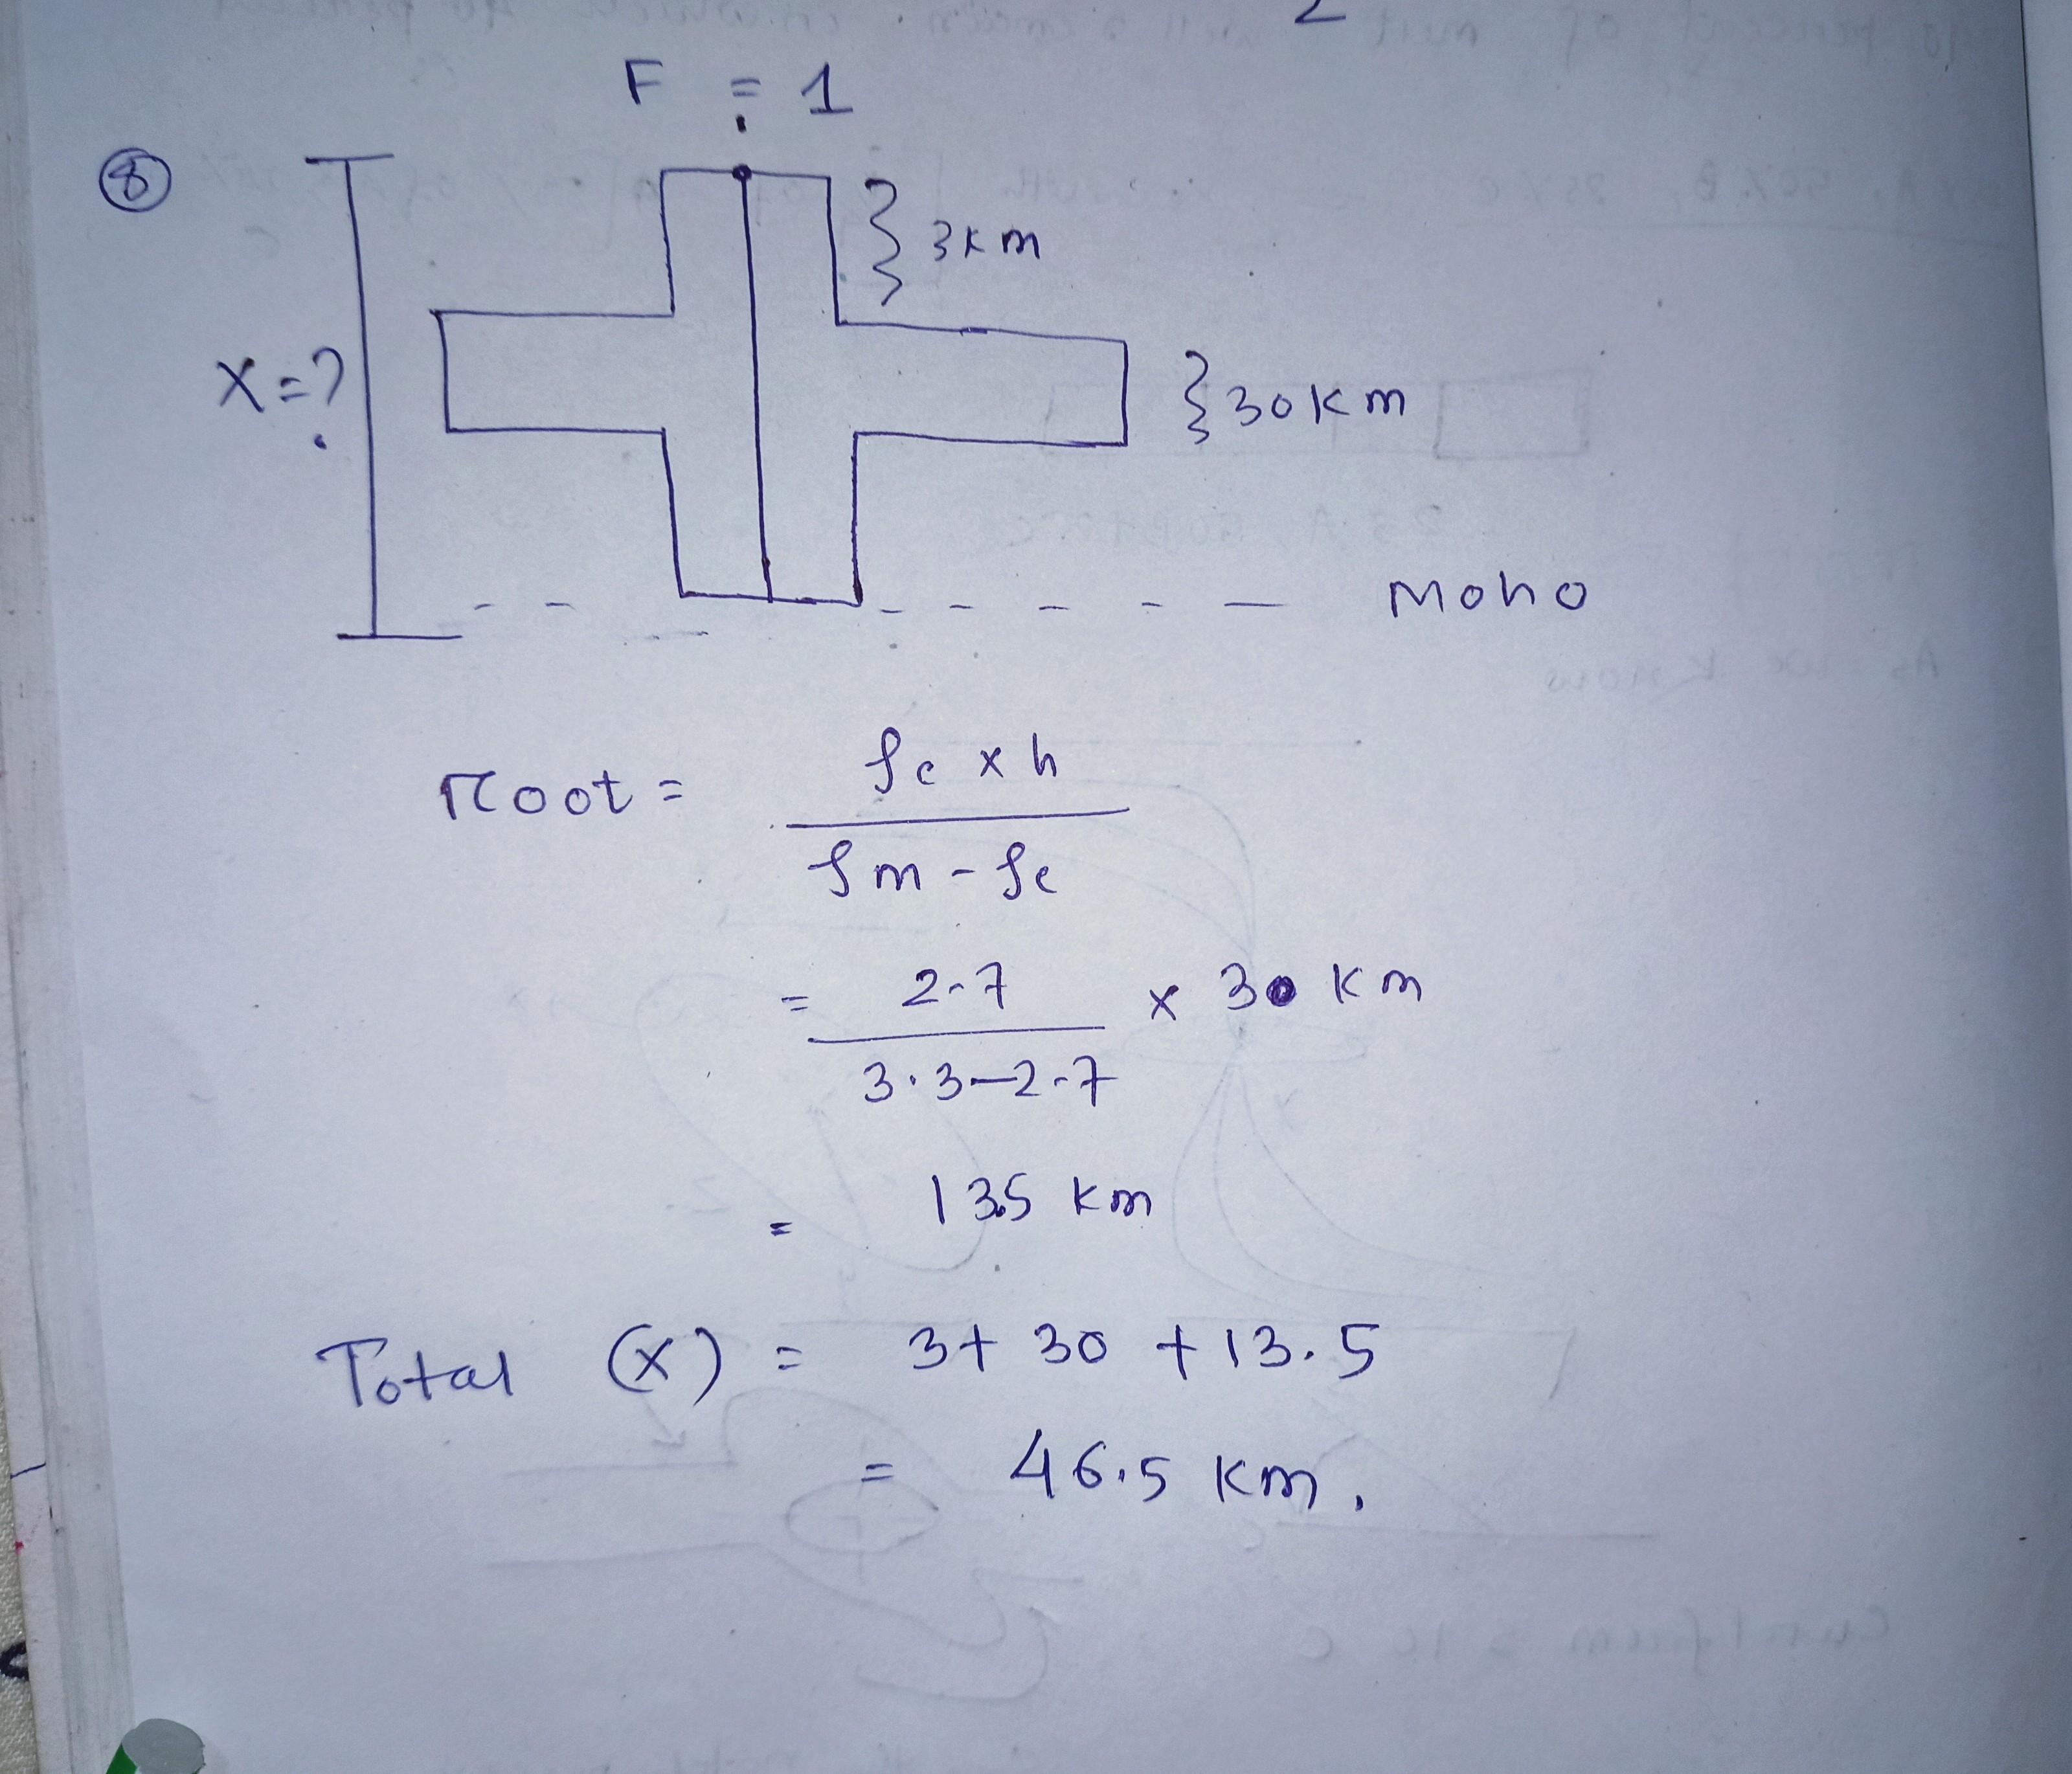 2
F = 1
⑧
3km
X = ?
30km
Moho
root = ρc × h / ρm - ρc
= 2.7 / 3.3 - 2.7 × 30 km
= 13.5 km
Total (X) = 3 + 30 + 13.5
= 46.5 km.